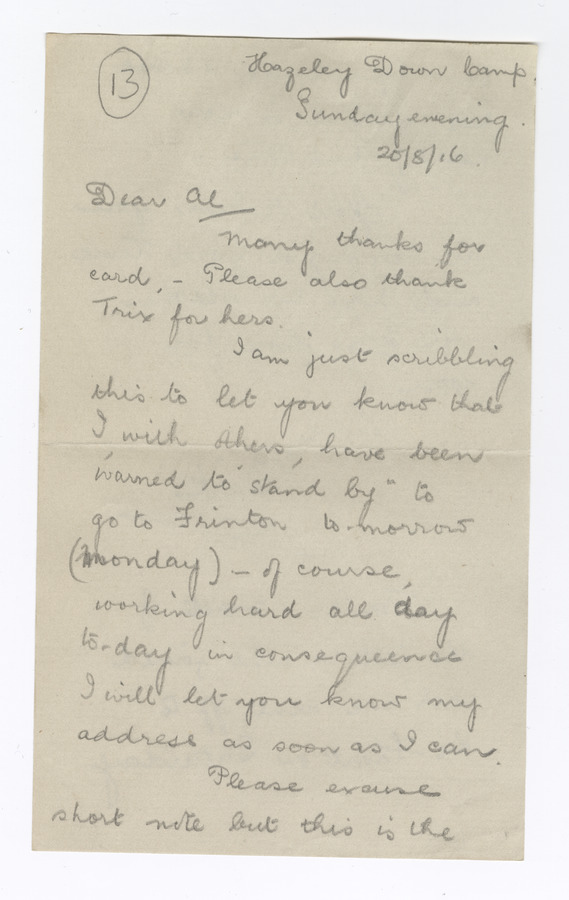 13
Hazeley Down Camp.
Sunday evening.
20/8/16.
Dear Al
Many thanks for
card, - Please also thank
Trix for hers.
I am just scribbling
this to let you know that
I, with others, have been
warned to "stand by" to
go to Frinton to-morrow
(Monday) - of course,
working hard all day
to-day in consequence
I will let you know my
address as soon as I can.
Please excuse
short note but this is the